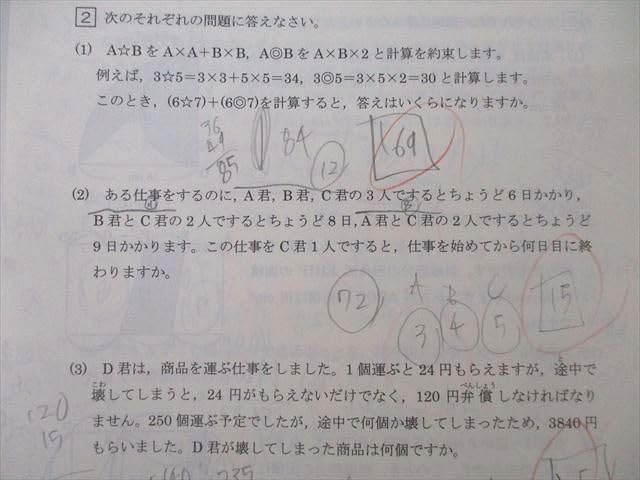 2 次のそれぞれの問題に答えなさい。
(1) A☆BをA×A+B×B, A◎BをA×B×2と計算を約束します。
例えば, 3☆5=3×3+5×5=34, 3◎5=3×5×2=30と計算します。
このとき, (6☆7)+(6◎7)を計算すると, 答えはいくらになりますか。
36
49
85
84
12
169
(2) ある仕事をするのに, A君, B君, C君の3人でするとちょうど6日かかり,
B君とC君の2人でするとちょうど8日, A君とC君の2人でするとちょうど
9日かかります。この仕事をC君1人ですると, 仕事を始めてから何日目に終
わりますか。
72
A B C
3 4 5
15
(3) D君は, 商品を運ぶ仕事をしました。1個運ぶと24円もらえますが, 途中で
壊してしまうと, 24円がもらえないだけでなく, 120円弁償しなければなり
ません。250個運ぶ予定でしたが, 途中で何個か壊してしまったため, 3840円
もらいました。D君が壊してしまった商品は何個ですか。
120
15